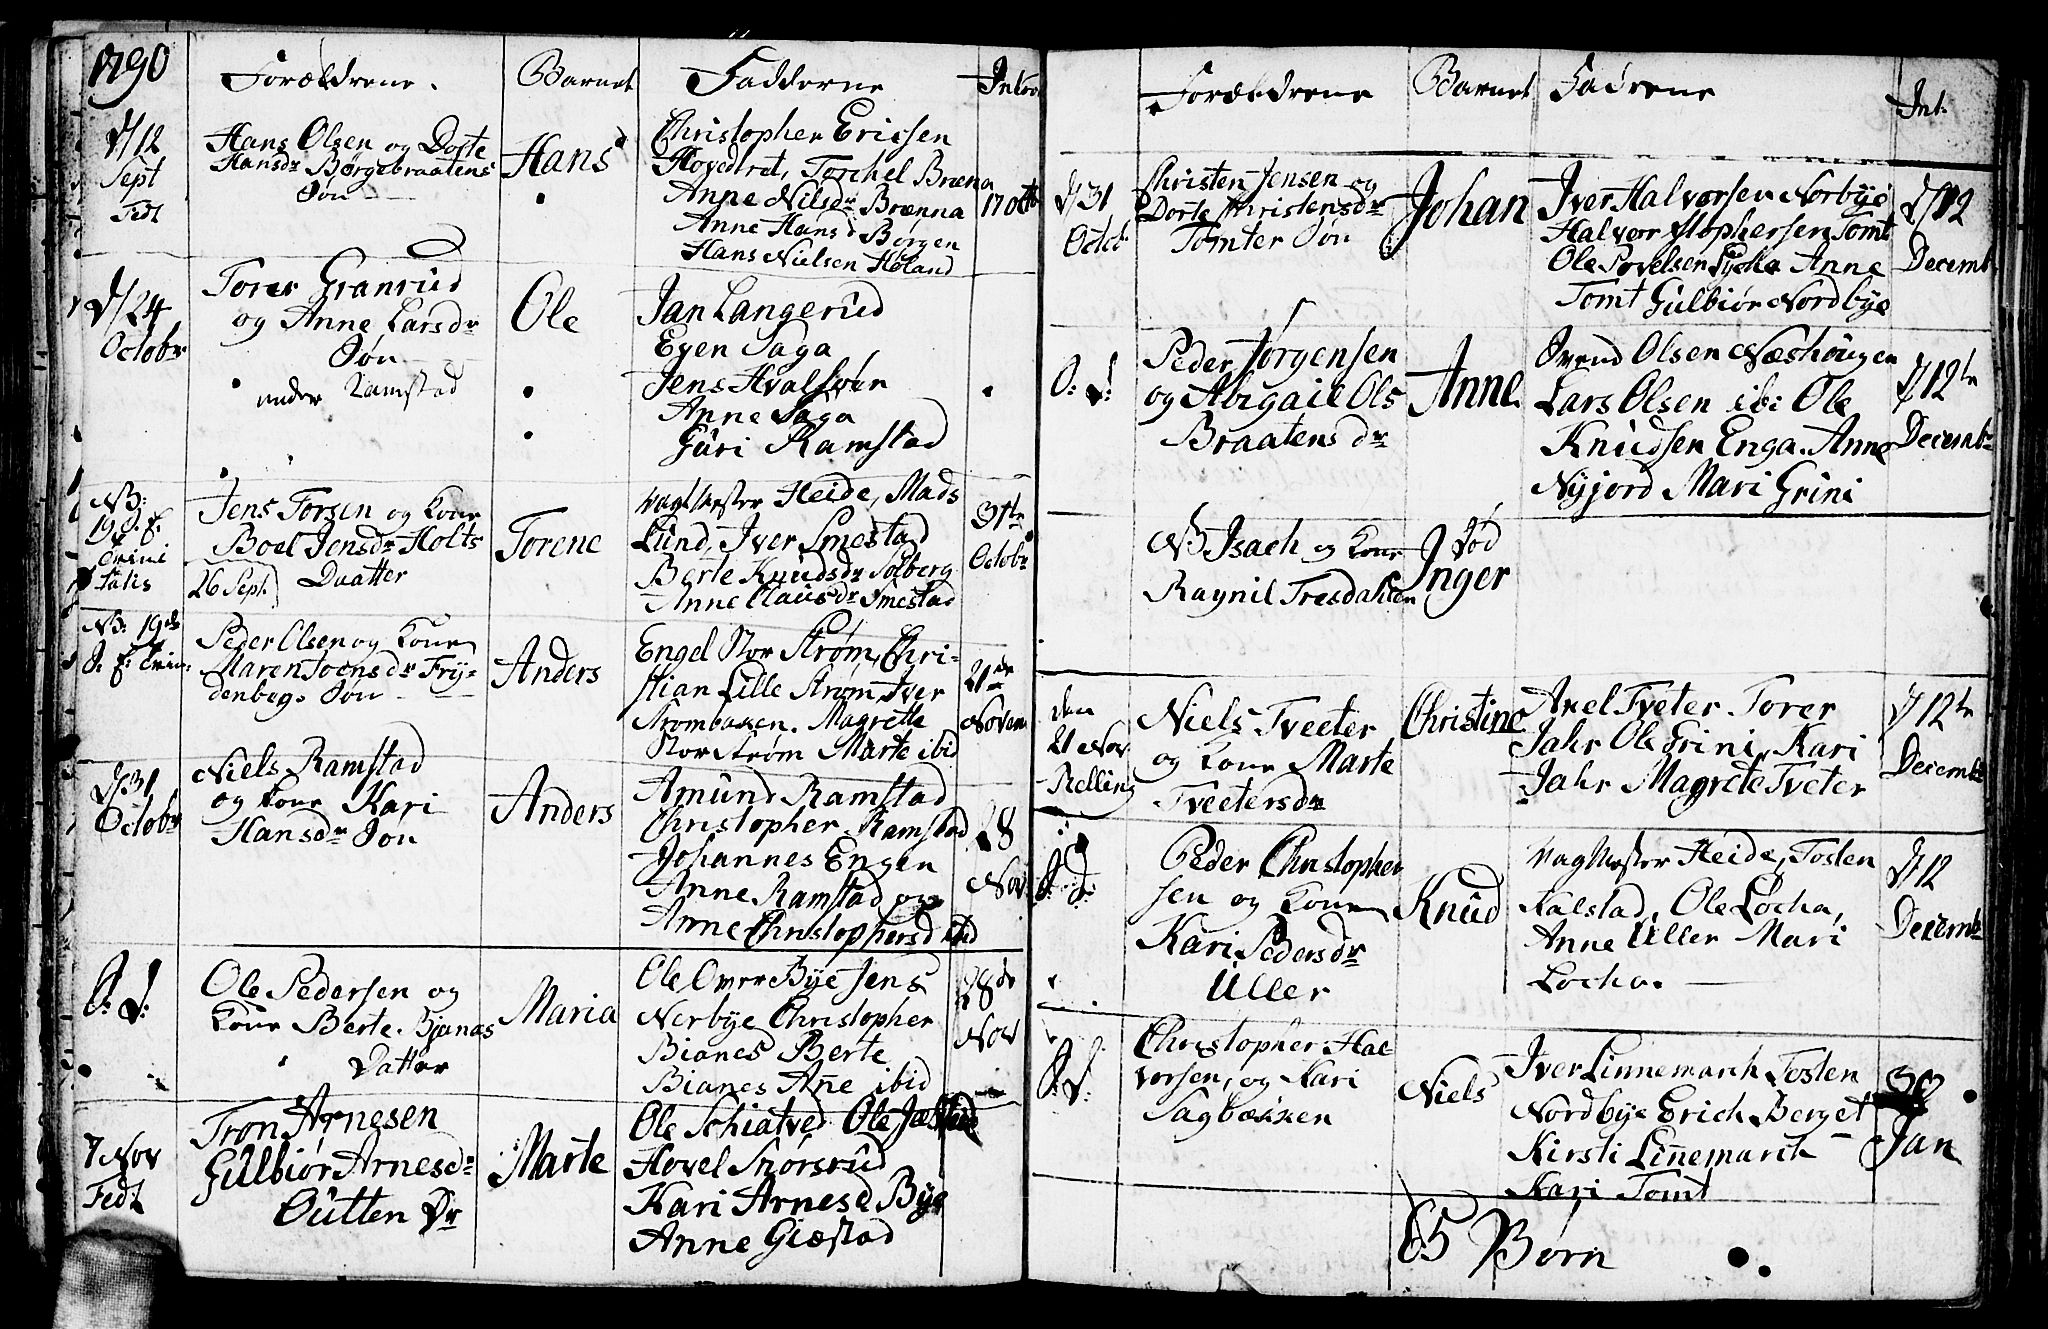 1790
Forældrene. Barnet Fadderne Intro
D/12 Sept Fedt
Hans Olsen og Dorte
Hansdr Børgebraatens
Søn
Hans
Christopher Ericsen
Hovedret, Torchel Brænna
Anne Nilsdr Brænna
Anne Hansd Børgen
Hans Nielsen Høland
17 Octb
D/24
Octobr
Torer Granrud
og Anne Larsdr
Søn
under Ramstad
Ole
Jan Langerud
Even Saga
Jens Hvalsøen
Anne Saga
Guri Ramstad
NB:
19 S. E.
Trini
tatis
Jens Torsen og Kone
Boel Jensdr Holts
26 Sept. Daatter
Torene
Vagtmester Heide, Mads
Lund, Iver Smestad
Berte Knudsdr Solberg
Anne Clausdr Smestad
31te
Octobr
NB: 19de
S. E. Trin:
Peder Olsen og Kone
Maren Joensdr Fry-
denbergs Søn
Anders
Engel Stor Strøm, Chri-
stian Lille Strøm, Iver
Strømbakken. Magrette
Stor Strøm Marte ibid
21de
Novem
D/31
Octobr
Niels Ramstad
og Kone Kari
Hansdr Søn
Anders
Amund Ramstad
Christopher Ramstad
Johannes Engen
Anne Ramstad og
Anne Christophersd ibid
28
Nov
S: D:
Ole Pedersen og
Kone Berte Bjanæs
Datter
Maria
Ole Over Bye Jens
Nerbye Christopher
Bianes Berte
Bianes Anne ibid
28de
Nov
7 Nov
Fedt
Tron Arnesen
Gulbiør Arnesdr
Outten Dr
Marte
Ole Schiatved Ole
Hovel Snorsrud
Kari Arnesd Bye
Anne Giæstad
Forældrene Barnet Fadrene Int:
D/31
Octob
Christen Jensen og
Dorte Christensdr
Tomter Søn
Johan
Iver Halvorsen Norbye
Halvor Stophersen Tomt
Ole Povelsen Lycke Anne
Tomt Gulbiør Nordbye
D/12
Decemb
S: D:
Peder Jørgensen
og Abigail Ols
Braatens dr
Anne
Svend Olsen Næshougen
Lars Olsen ib: Ole
Knudsen Enga. Anne
Nyjord Mari Grini
D/12te
Decembr
NB Isach og Kone
Raynil Tresdahlen
død
Inger
den
21 Nov.
Relling
Niels Tveeter
og Kone Marte
Tveetersdr
Christine
Axel Tveter Torer
Jahr Ole Grini, Kari
Jahr Magrete Tveter
D/12te
Decembr
S: D:
Peder Christopher
sen og Kone
Kari Pedersdr
Uller
Knud
Vagtmester Heide, Tosten
Kalstad, Ole Løcha,
Anne Uller Mari
Løcha.
D/12
Decembr
S: D:
Christopher Hal
vorsen, og Kari
Sagbækken
Niels
Iver Linnemarck Tosten
Nordbye Erich Berget
Kirsti Linnemarck
Kari Tomt
Jan
65 Børn